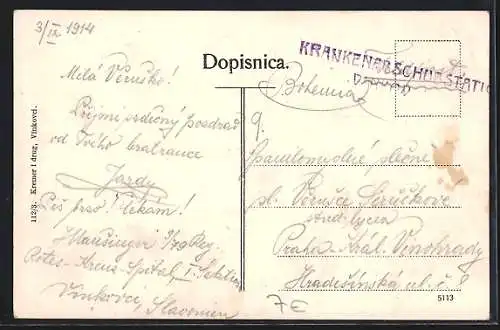 3/IX 1914
Dopisnica.
KRANKENABSCHUBSTATIO
Bohemia
Milá Věruško!
Přijmi srdečný pozdrav
od Tvého bratrance
Jardy
Piš psso! Čekám!
Hausinger 3/79 Reg.
Rotes-Kreuz-Spital, I. Station
Vinkovci, Slavonien
Velectěná slečna
sl. Věruše
stud. lycea
Praha Král. Vinohrady
Hradešínská ul. č. 8
112/3. Kremer i drug, Vinkovci.
5113
7€